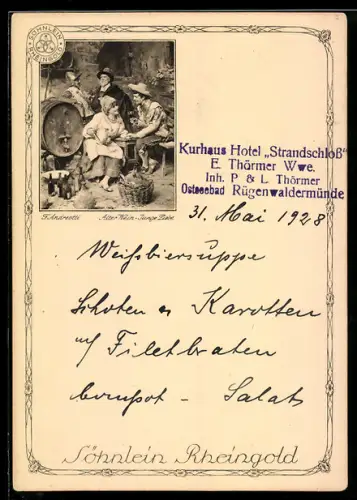 SÖHNLEIN RHEINGOLD
F. Andreotti Alter Wein - Junge Liebe
Kurhaus Hotel „Strandschloß"
E. Thörmer Wwe.
Inh. P & L Thörmer
Ostseebad Rügenwaldermünde
31. Mai 1928
Weißbiersuppe
Schoten u Karotten
auf Filetbraten
Compot - Salat
Söhnlein Rheingold